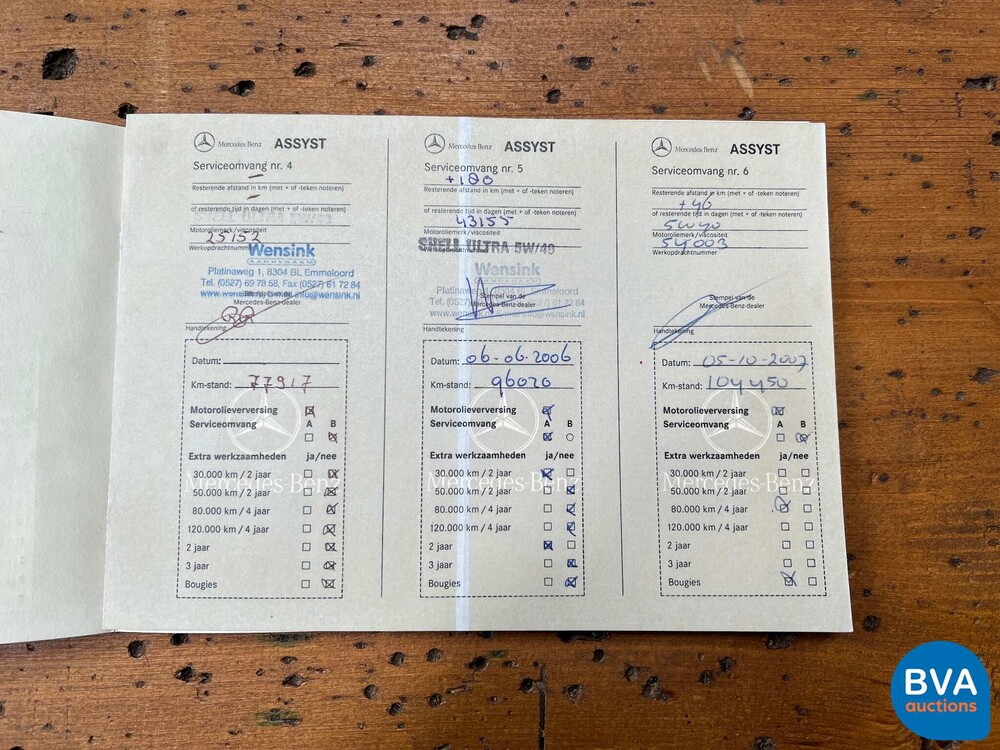 Mercedes Benz ASSYST
Serviceomvang nr. 4
-
Resterende afstand in km (met + of -teken noteren)
-
of resterende tijd in dagen (met + of -teken noteren)
Motoroliemerk/viscositeit
25152
Werkopdrachtnummer
Wensink
Platinaweg 1, 8304 BL Emmeloord
Tel. (0527) 69 78 58, Fax (0527) 61 72 84
Stempel van de
Mercedes-Benz-dealer
Handtekening
Datum:
Km-stand: 77917
Motorolieverversing
Serviceomvang A B
Extra werkzaamheden ja/nee
30.000 km / 2 jaar
50.000 km / 2 jaar
80.000 km / 4 jaar
120.000 km / 4 jaar
2 jaar
3 jaar
Bougies
Mercedes-Benz
Mercedes Benz ASSYST
Serviceomvang nr. 5
+180
Resterende afstand in km (met + of -teken noteren)
of resterende tijd in dagen (met + of -teken noteren)
43155
Motoroliemerk/viscositeit
SHELL ULTRA 5W/40
Wensink
Platinaweg 1, 8304 BL Emmeloord
Stempel van de
Mercedes-Benz-dealer
Handtekening
Datum: 06-06-2006
Km-stand: 96020
Motorolieverversing
Serviceomvang A B
Extra werkzaamheden ja/nee
30.000 km / 2 jaar
50.000 km / 2 jaar
80.000 km / 4 jaar
120.000 km / 4 jaar
2 jaar
3 jaar
Bougies
Mercedes-Benz
Mercedes Benz ASSYST
Serviceomvang nr. 6
Resterende afstand in km (met + of -teken noteren)
+40
of resterende tijd in dagen (met + of -teken noteren)
5W40
Motoroliemerk/viscositeit
54003
Werkopdrachtnummer
Stempel van de
Mercedes-Benz-dealer
Handtekening
Datum: 05-10-2007
Km-stand: 104450
Motorolieverversing
Serviceomvang A B
Extra werkzaamheden ja/nee
30.000 km / 2 jaar
50.000 km / 2 jaar
80.000 km / 4 jaar
120.000 km / 4 jaar
2 jaar
3 jaar
Bougies
Mercedes-Benz
BVA
auctions